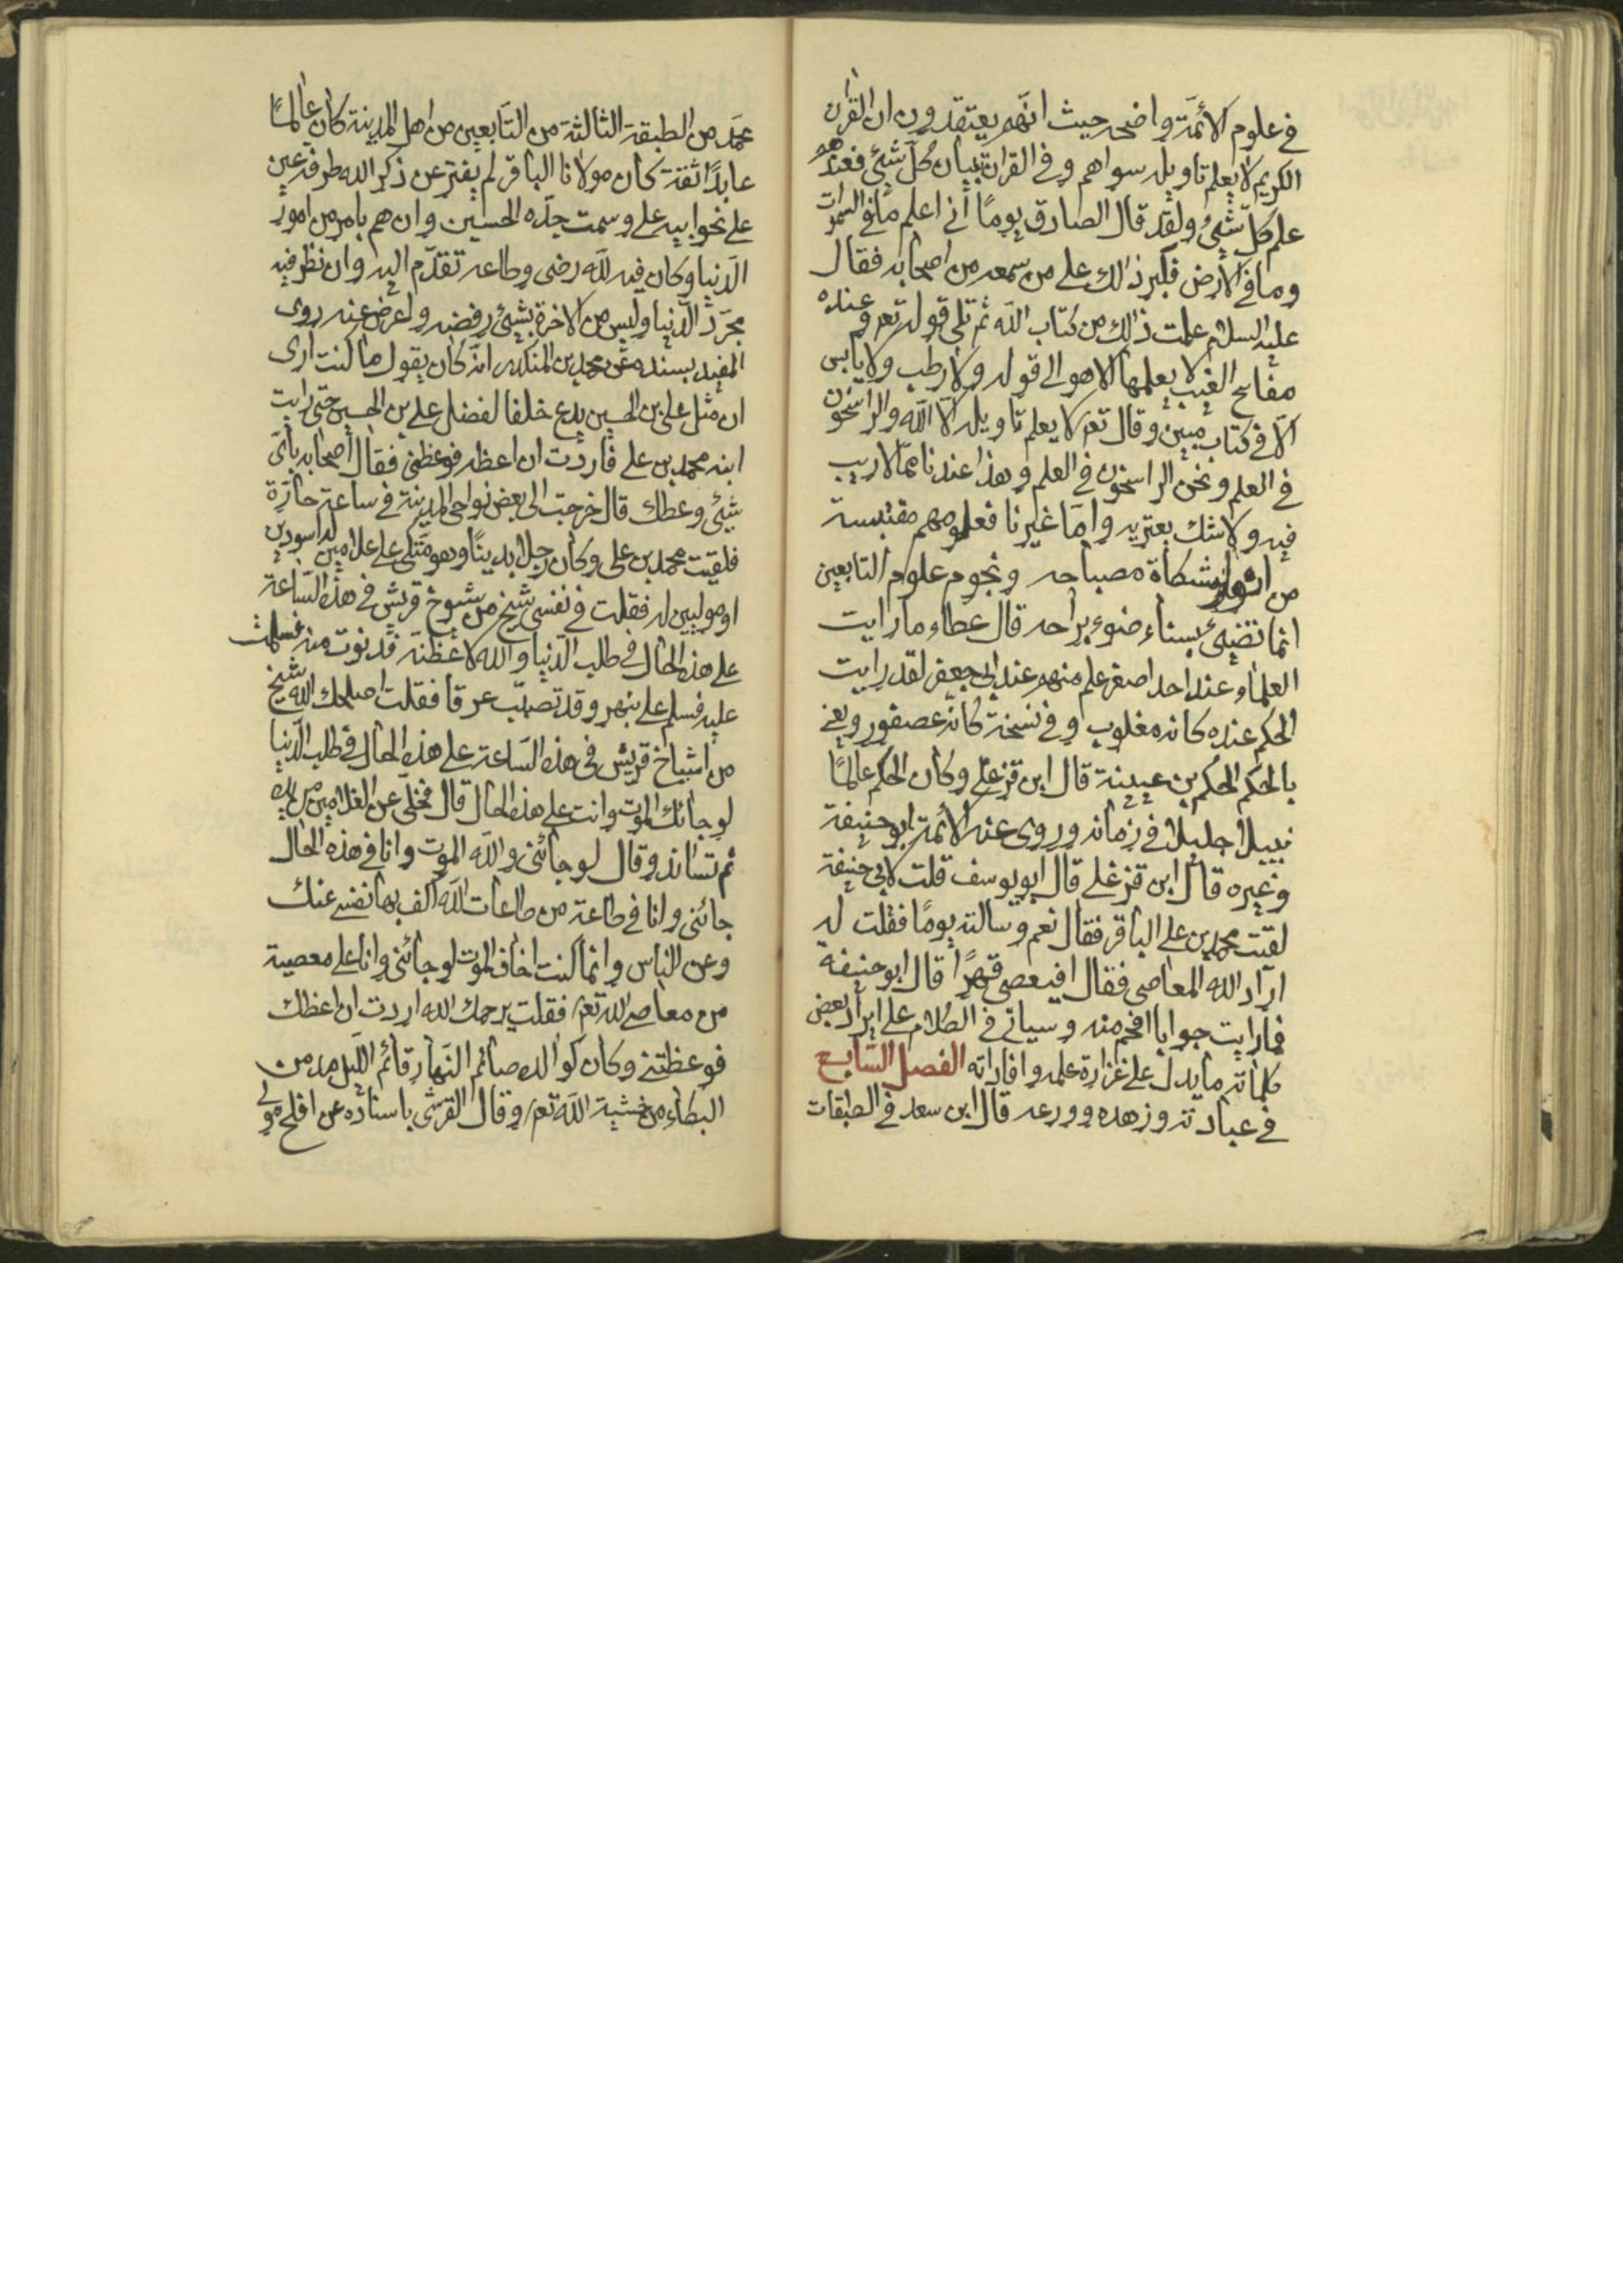 في علوم الائمّة واضح حيث انّهم يعتقدون ان القران
الكريم لا يعلم تاويله سواهم وفي القران تبيان كل شيئ فعندهم
علم كل شيئ ولقد قال الصادق يومًا أني اعلم ما في السموات
وما في الارض فكبر ذالك على من سمعه من اصحابه فقال
عليه السلام علمت ذالك من كتاب الله ثم تلى قوله تعم وعنده
مفاتيح الغيب لا يعلمها الا هو الى قوله ولا رطب ولا يابس
الّا في كتاب مبين وقال تعم لا يعلم تاويله الّا الله والراسخون
في العلم ونحن الراسخون في العلم وهذا عندنا ممّا لا ريب
فيه ولا شك يعتريه وامّا غيرنا فعلومهم مقتبسة
من مشكاة مصباحه ونجوم علوم التابعين
انما تضيئ بسناء ضوء براحه قال عطاء ما رايت
العلماء عند احد اصغر علم منهم عند ابي جعفر لقد رايت
الحكم عنده كانه مغلوب وفي نسخة كانه عصفور ويعني
بالحكم الحكم بن عيينة قال ابن قزغلي وكان الحكم عالمًا
نبيلا جليلا في زمانه وروى عنه الائمّة ابو حنيفة
وغيره قال ابن قزغلي قال ابو يوسف قلت لابي حنيفة
لقيت محمد بن علي الباقر فقال نعم وسالته يومًا فقلت له
اراد الله المعاصي فقال افيعصى قهرًا قال ابو حنيفة
فما رايت جوابا افحم منه وسياتي في الكلام على ايراد بعض
كلماته ما يدل على غزارة علمه وافاداته الفصل السّابع
في عبادته وزهده وورعه قال ابن سعد في الطبقات
محمّد من الطبقة الثالثة من التّابعين من اهل المدينة كان عالمًا
عابدًا ثقة كان مولانا الباقر لم يفتر عن ذكر الله طرفة عين
على نحو ابيه علي وسمت جدّه الحسين وان هم بامر من امور
الدّنيا وكان فيه للّه رضى وطاعة تقدّم اليه وان نظر فيه
مجرّد الدّنيا وليس من الاخرة بشيئ رفضه واعرض عنه روى
المفيد بسنده عن محمد بن المنكدر انّه كان يقول ما كنت ارى
ان مثل علي بن الحسين يدع خلفا لفضل علي بن الحسين حتى رايت
ابنه محمد بن علي فاردت ان اعظه فوعظني فقال اصحابه باىّ
شيئ وعظك قال خرجت الى بعض نواحي المدينة في ساعة حارّة
فلقيت محمد بن علي وكان رجلا بدينًا وهو متكى على غلامين له اسودين
او موليين له فقلت في نفسي شيخ من شيوخ قريش في هذه السّاعة
على هذه الحال في طلب الدّنيا والله لاعظنّه فدنوت منه فسلمت
عليه فسلم علي بنهر وقد تصبّب عرقا فقلت اصلحك الله شيخ
من اشياخ قريش في هذه السّاعة على هذه الحال في طلب الدّنيا
لو جائك الموت وانت على هذه الحال قال فخلّى عن الغلامين من يده
ثم تساند وقال لو جائني والله الموت وانا في هذه الحال
جائني وانا في طاعة من طاعات الله اكف بها نفسي عنك
وعن الناس وانما كنت اخاف الموت لو جائني وانا على معصية
من معاصي الله تعم فقلت يرحمك الله اردت ان اعظك
فوعظتني وكان كوالده صائم النّهار قائم اللّيل مد من
البكاء من خشية الله تعم وقال القرشي باسناده عن افلح مولى